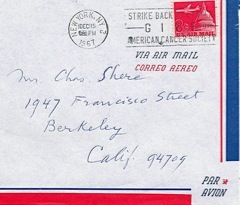 NEW YORK, N.Y.
DEC 15
PM
1967
STRIKE BACK
G I
AMERICAN CANCER SOCIETY
U.S. AIR MAIL
VIA AIR MAIL
CORREO AEREO
Mr. Chas. Shere
1947 Francisco Street
Berkeley
Calif. 94709
PAR
AVION